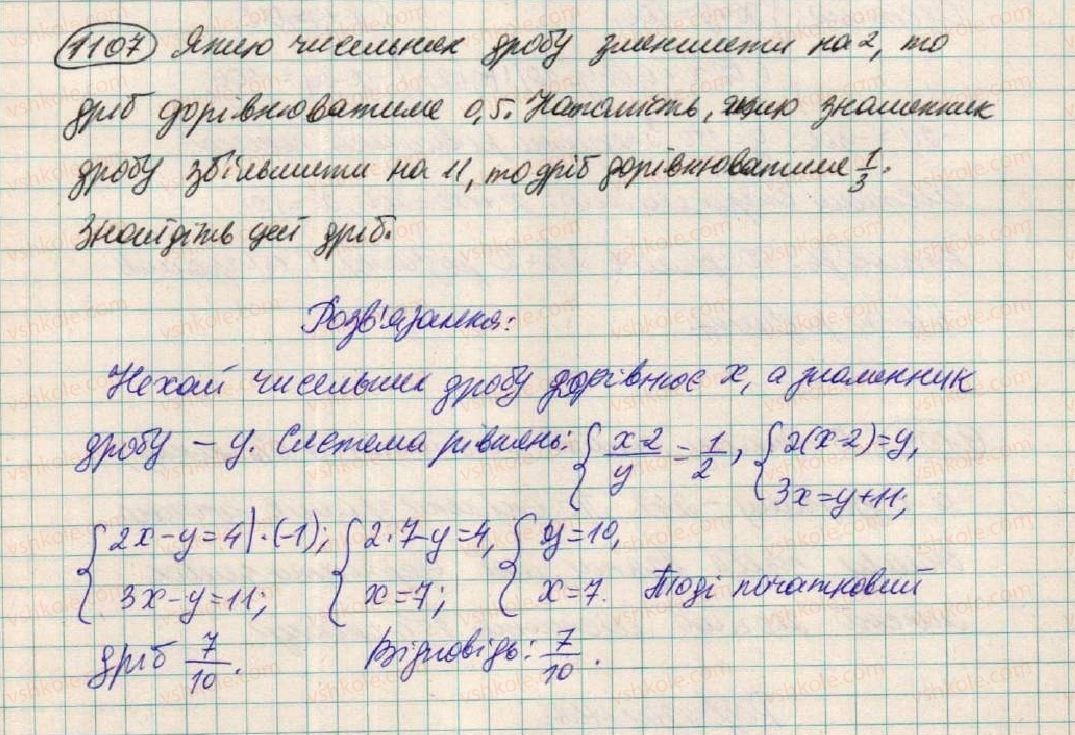 1107 Якщо чисельник дробу зменшити на 2, то
дріб дорівнюватиме 0,5. Натомість, якщо знаменник
дробу збільшити на 11, то дріб дорівнюватиме 1/3.
Знайдіть цей дріб.
Розв'язання:
Нехай чисельник дробу дорівнює x, а знаменник
дробу – y. Система рівнянь: { (x-2)/y = 1/2, { 2(x-2)=y, 3x=y+11;
{ 2x-y=4|·(-1); 3x-y=11; { 2·7-y=4, x=7; { y=10, x=7. Тоді початковий
дріб 7/10. Відповідь: 7/10.